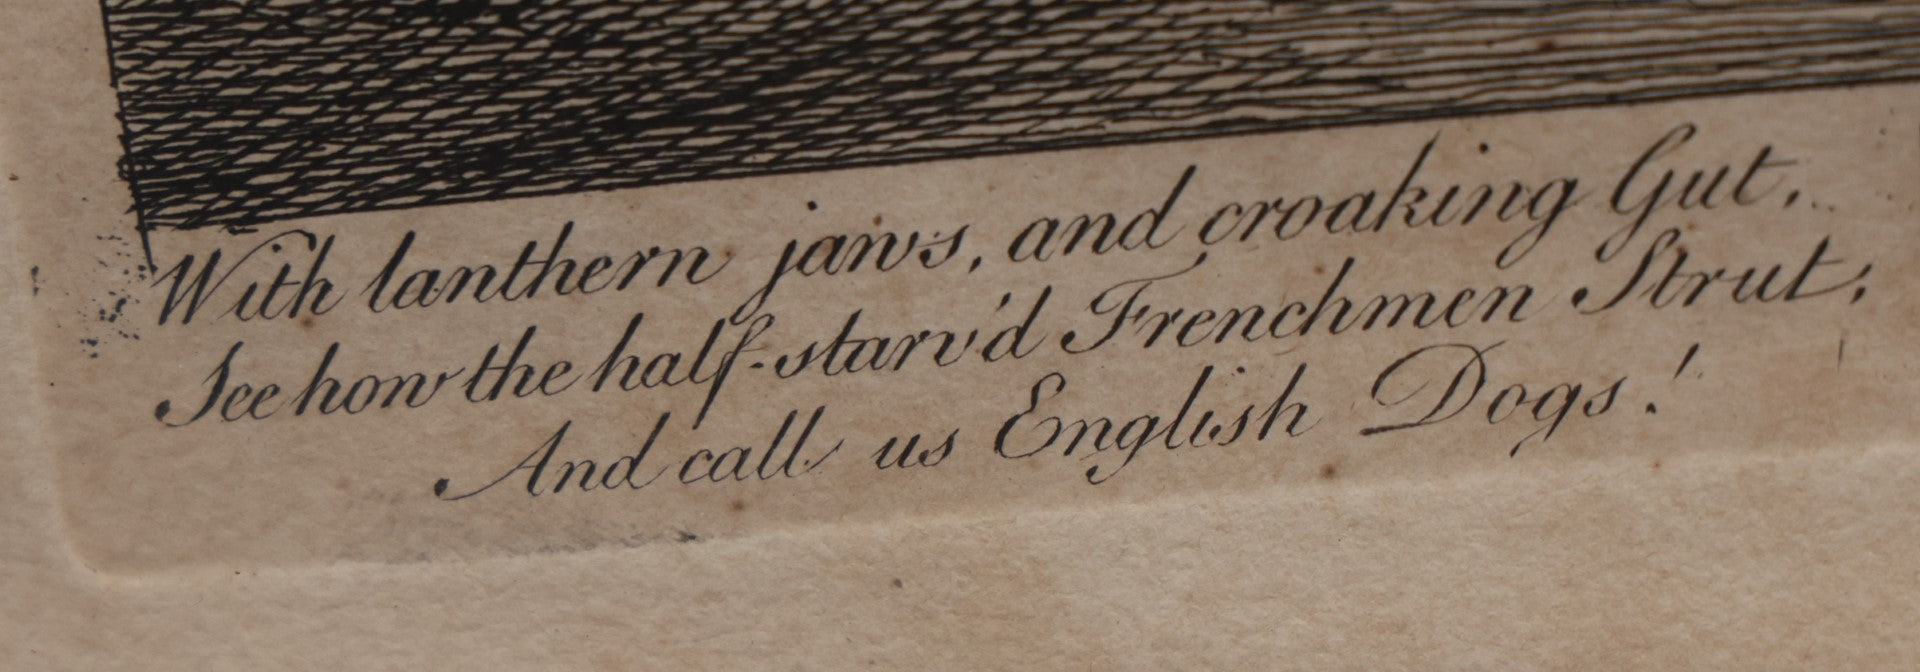 With lanthern jaws, and croaking Gut,
See how the half-starv'd Frenchmen Strut,
And call us English Dogs!